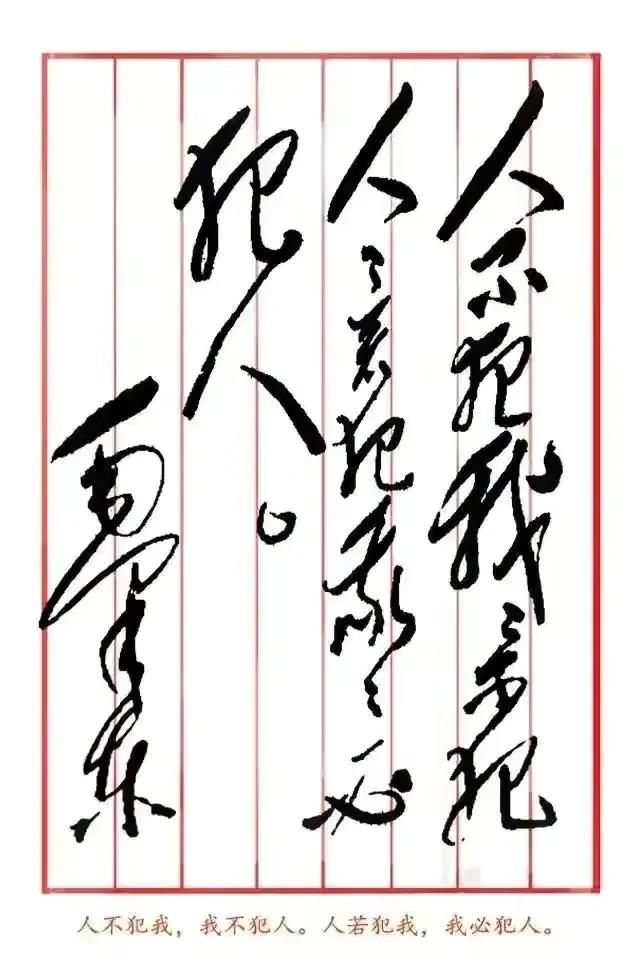 人不犯我〻不犯
人〻若犯我〻必
犯人。
毛泽东
人不犯我，我不犯人。人若犯我，我必犯人。